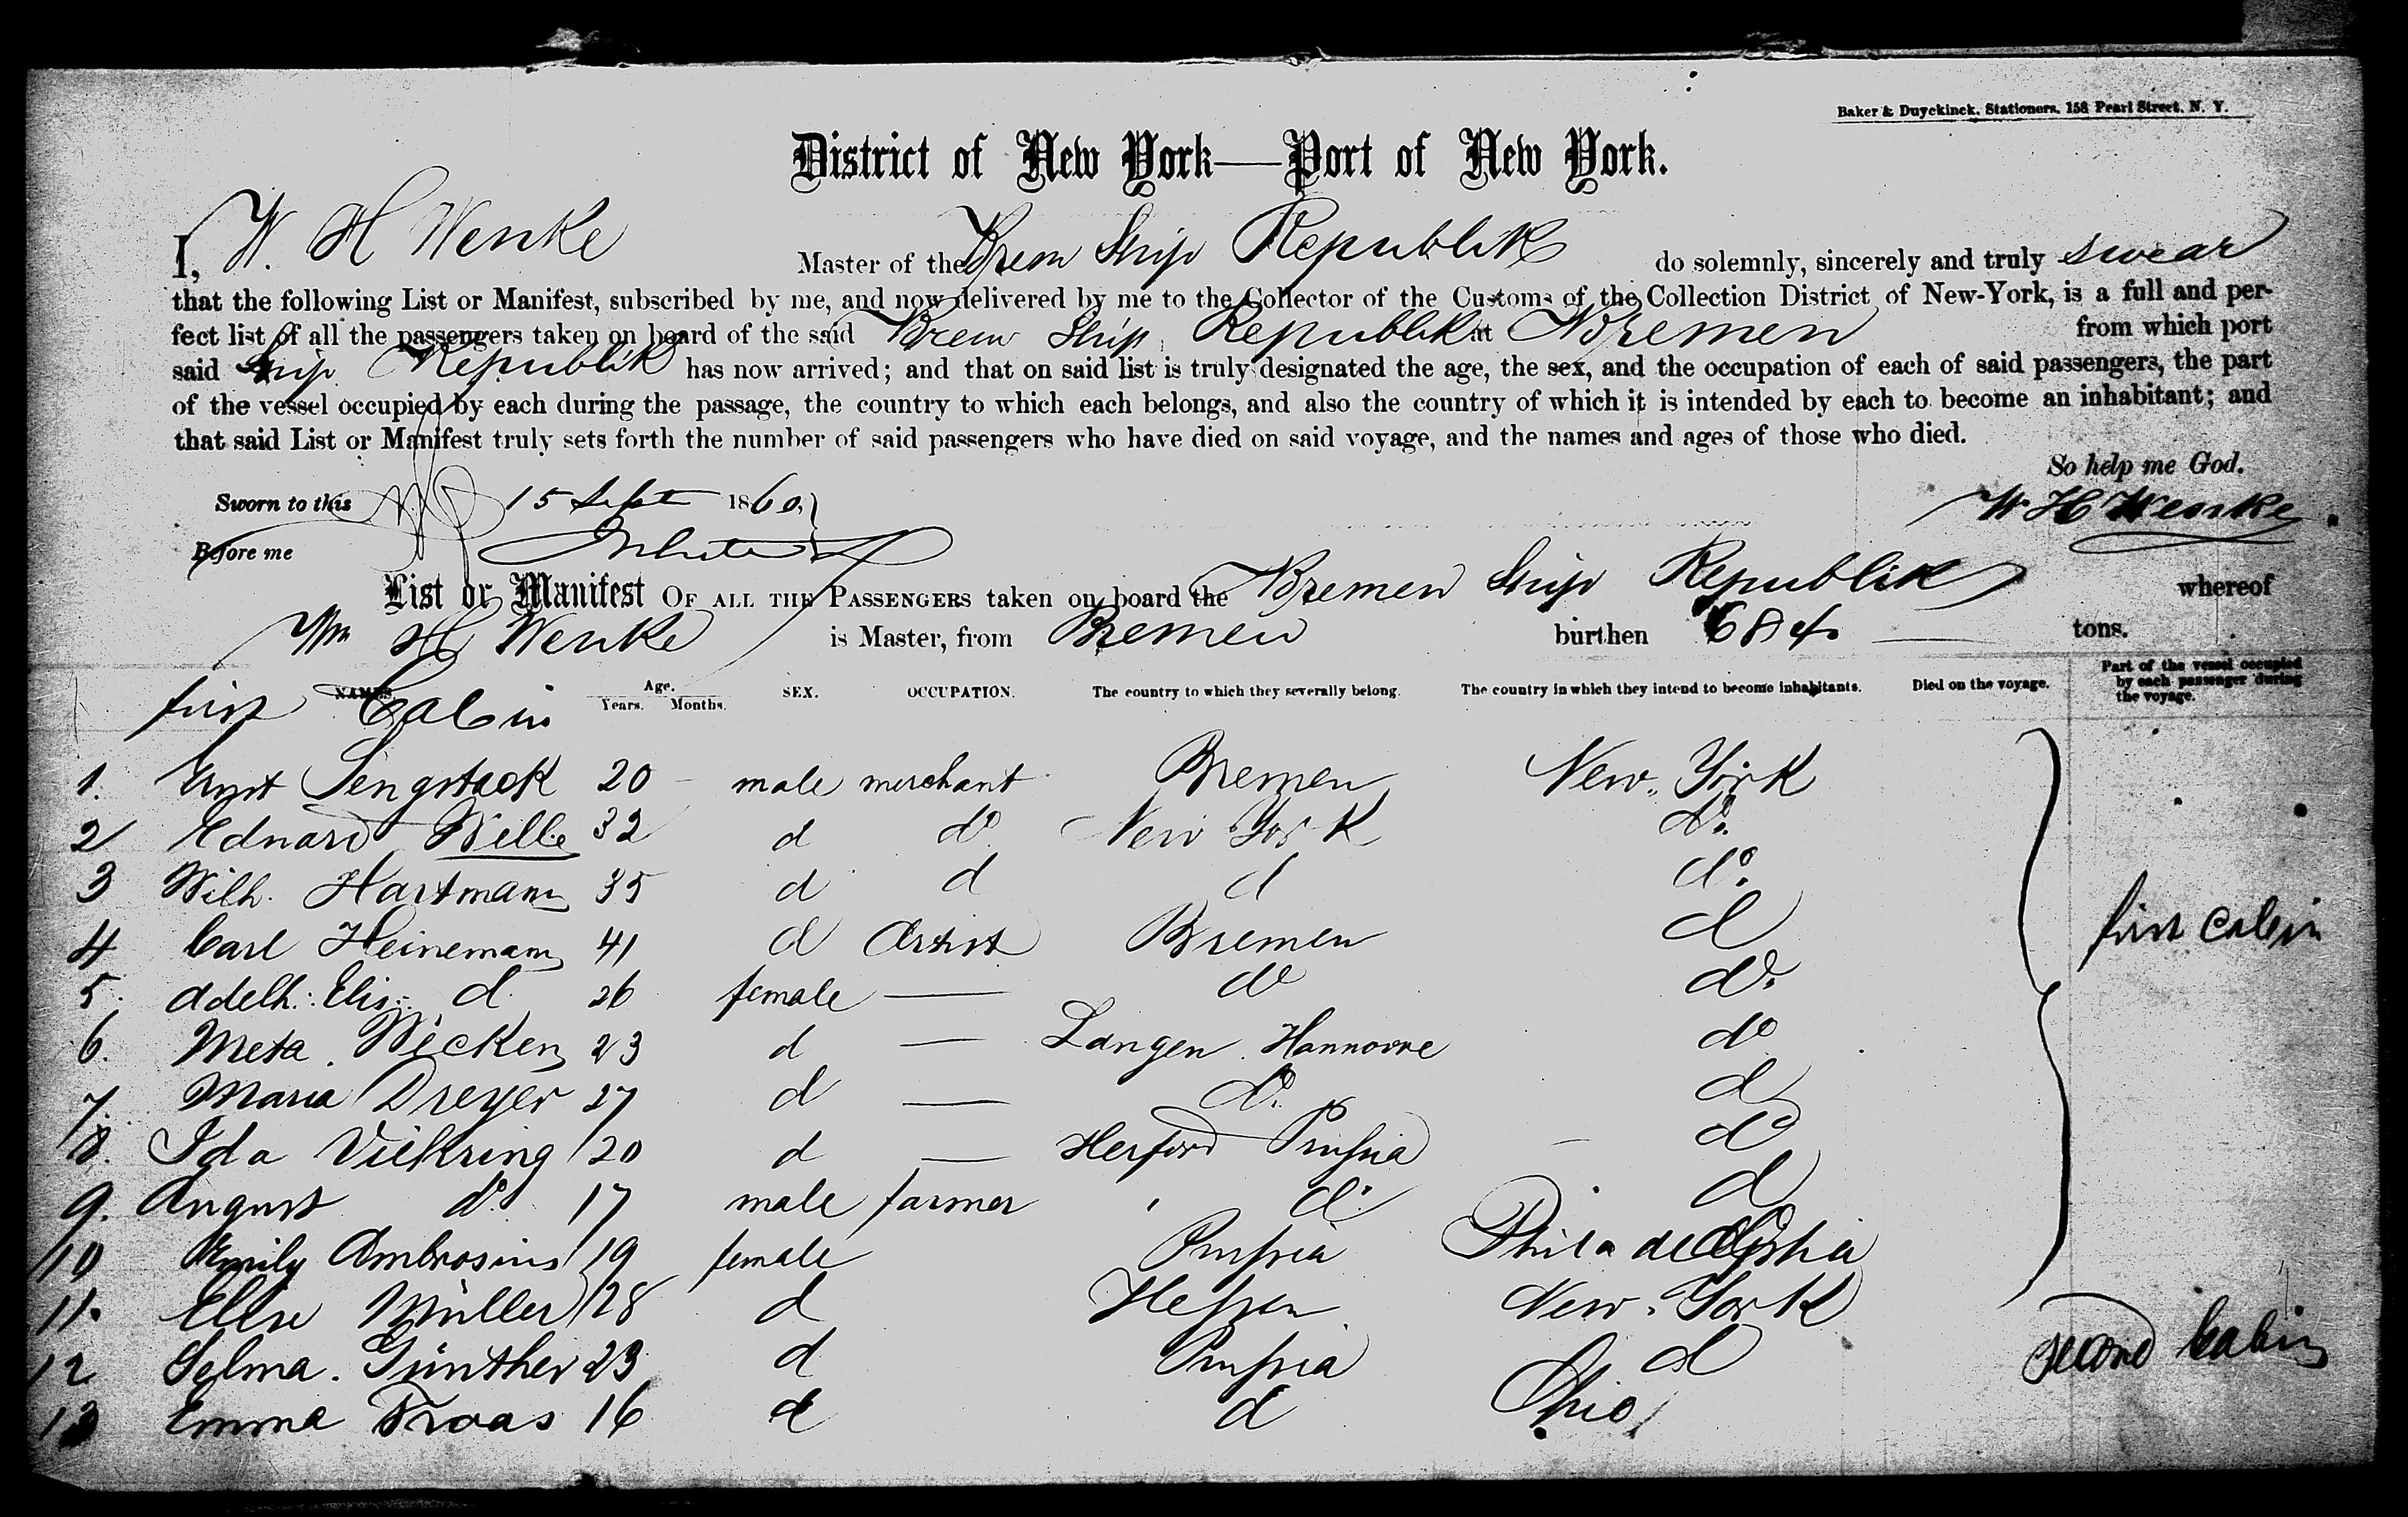 Baker & Duyckinck, Stationers, 158 Pearl Street, N. Y.
District of New York—Port of New York.
I, W. H Wenke Master of the Brem Ship Republik do solemnly, sincerely and truly swear
that the following List or Manifest, subscribed by me, and now delivered by me to the Collector of the Customs of the Collection District of New-York, is a full and per-
fect list of all the passengers taken on board of the said Brem Ship Republik at Bremen from which port
said Ship Republik has now arrived; and that on said list is truly designated the age, the sex, and the occupation of each of said passengers, the part
of the vessel occupied by each during the passage, the country to which each belongs, and also the country of which it is intended by each to become an inhabitant; and
that said List or Manifest truly sets forth the number of said passengers who have died on said voyage, and the names and ages of those who died.
So help me God.
Sworn to this 15 Sept 1860 W H Wenke
Before me
List or Manifest OF ALL THE PASSENGERS taken on board the Bremen Ship Republik whereof
Wm H Wenke is Master, from Bremen burthen 684 tons.
NAMES. Age. Years. Months. SEX. OCCUPATION. The country to which they severally belong. The country in which they intend to become inhabitants. Died on the voyage. Part of the vessel occupied by each passenger during the voyage.
first Cabin
1. Ernst Sengstack 20 male merchant Bremen New-York
2 Eduard Wille 32 d do New York do.
3 Wilh. Hartmann 35 d d d do.
4 Carl Heinemann 41 d Artist Bremen d first cabin
5. Adelh: Elis: d. 26 female — do do.
6. Meta Wicken 23 d — Langen Hannovre do
7. Maria Dreyer 27 d — do. d
8. Ida VieKring 20 d — Herford Prussia do
9. August do. 17 male farmer " do. d
10 Emily Ambrosius 19 female Prussia Philadelphia
11. Elise Müller 28 d Hessen New-York
12 Selma Günther 23 d Prussia d second Cabin
13 Emma Traas 16 d d Ohio